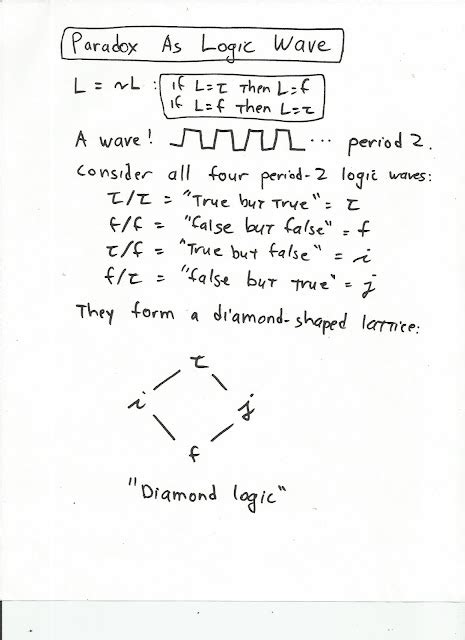 Paradox As Logic Wave
L = ~L : if L=t then L=f
if L=f then L=t
A wave! ... period 2.
Consider all four period-2 logic waves:
t/t = "True but True" = t
f/f = "false but false" = f
t/f = "True but false" = i
f/t = "false but true" = j
They form a diamond-shaped lattice:
t
i j
f
"Diamond logic"